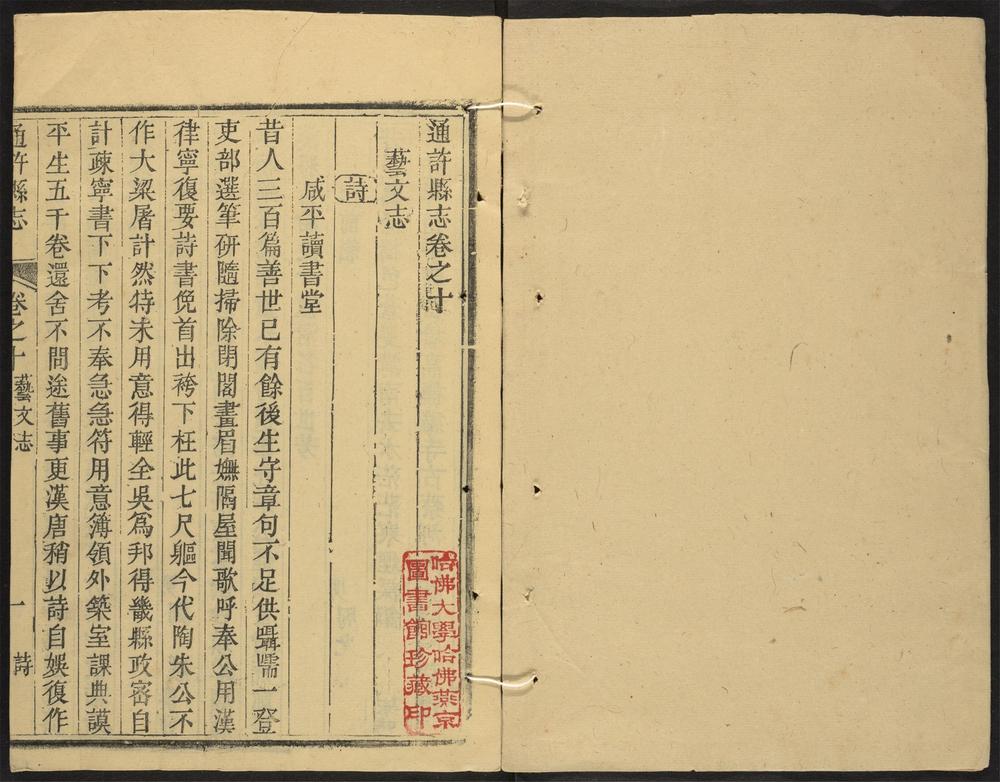 通許縣志卷之十
藝文志
詩
咸平讀書堂
昔人三百篇善世已有餘後生守章句不足供囁嚅一登
吏部選筆研隨掃除閉閤畫眉嫵隔屋聞歌呼奉公用漢
律寧復要詩書俛首出袴下枉此七尺軀今代陶朱公不
作大梁屠計然特未用意得輕全吳爲邦得畿縣政密自
計疎寧書下下考不奉急急符用意簿領外築室課典謨
平生五千卷還舍不問途舊事更漢唐稍以詩自娛復作
通許縣志
卷之十
藝文志
一
詩
哈佛大學哈佛燕京
圖書館珍藏印